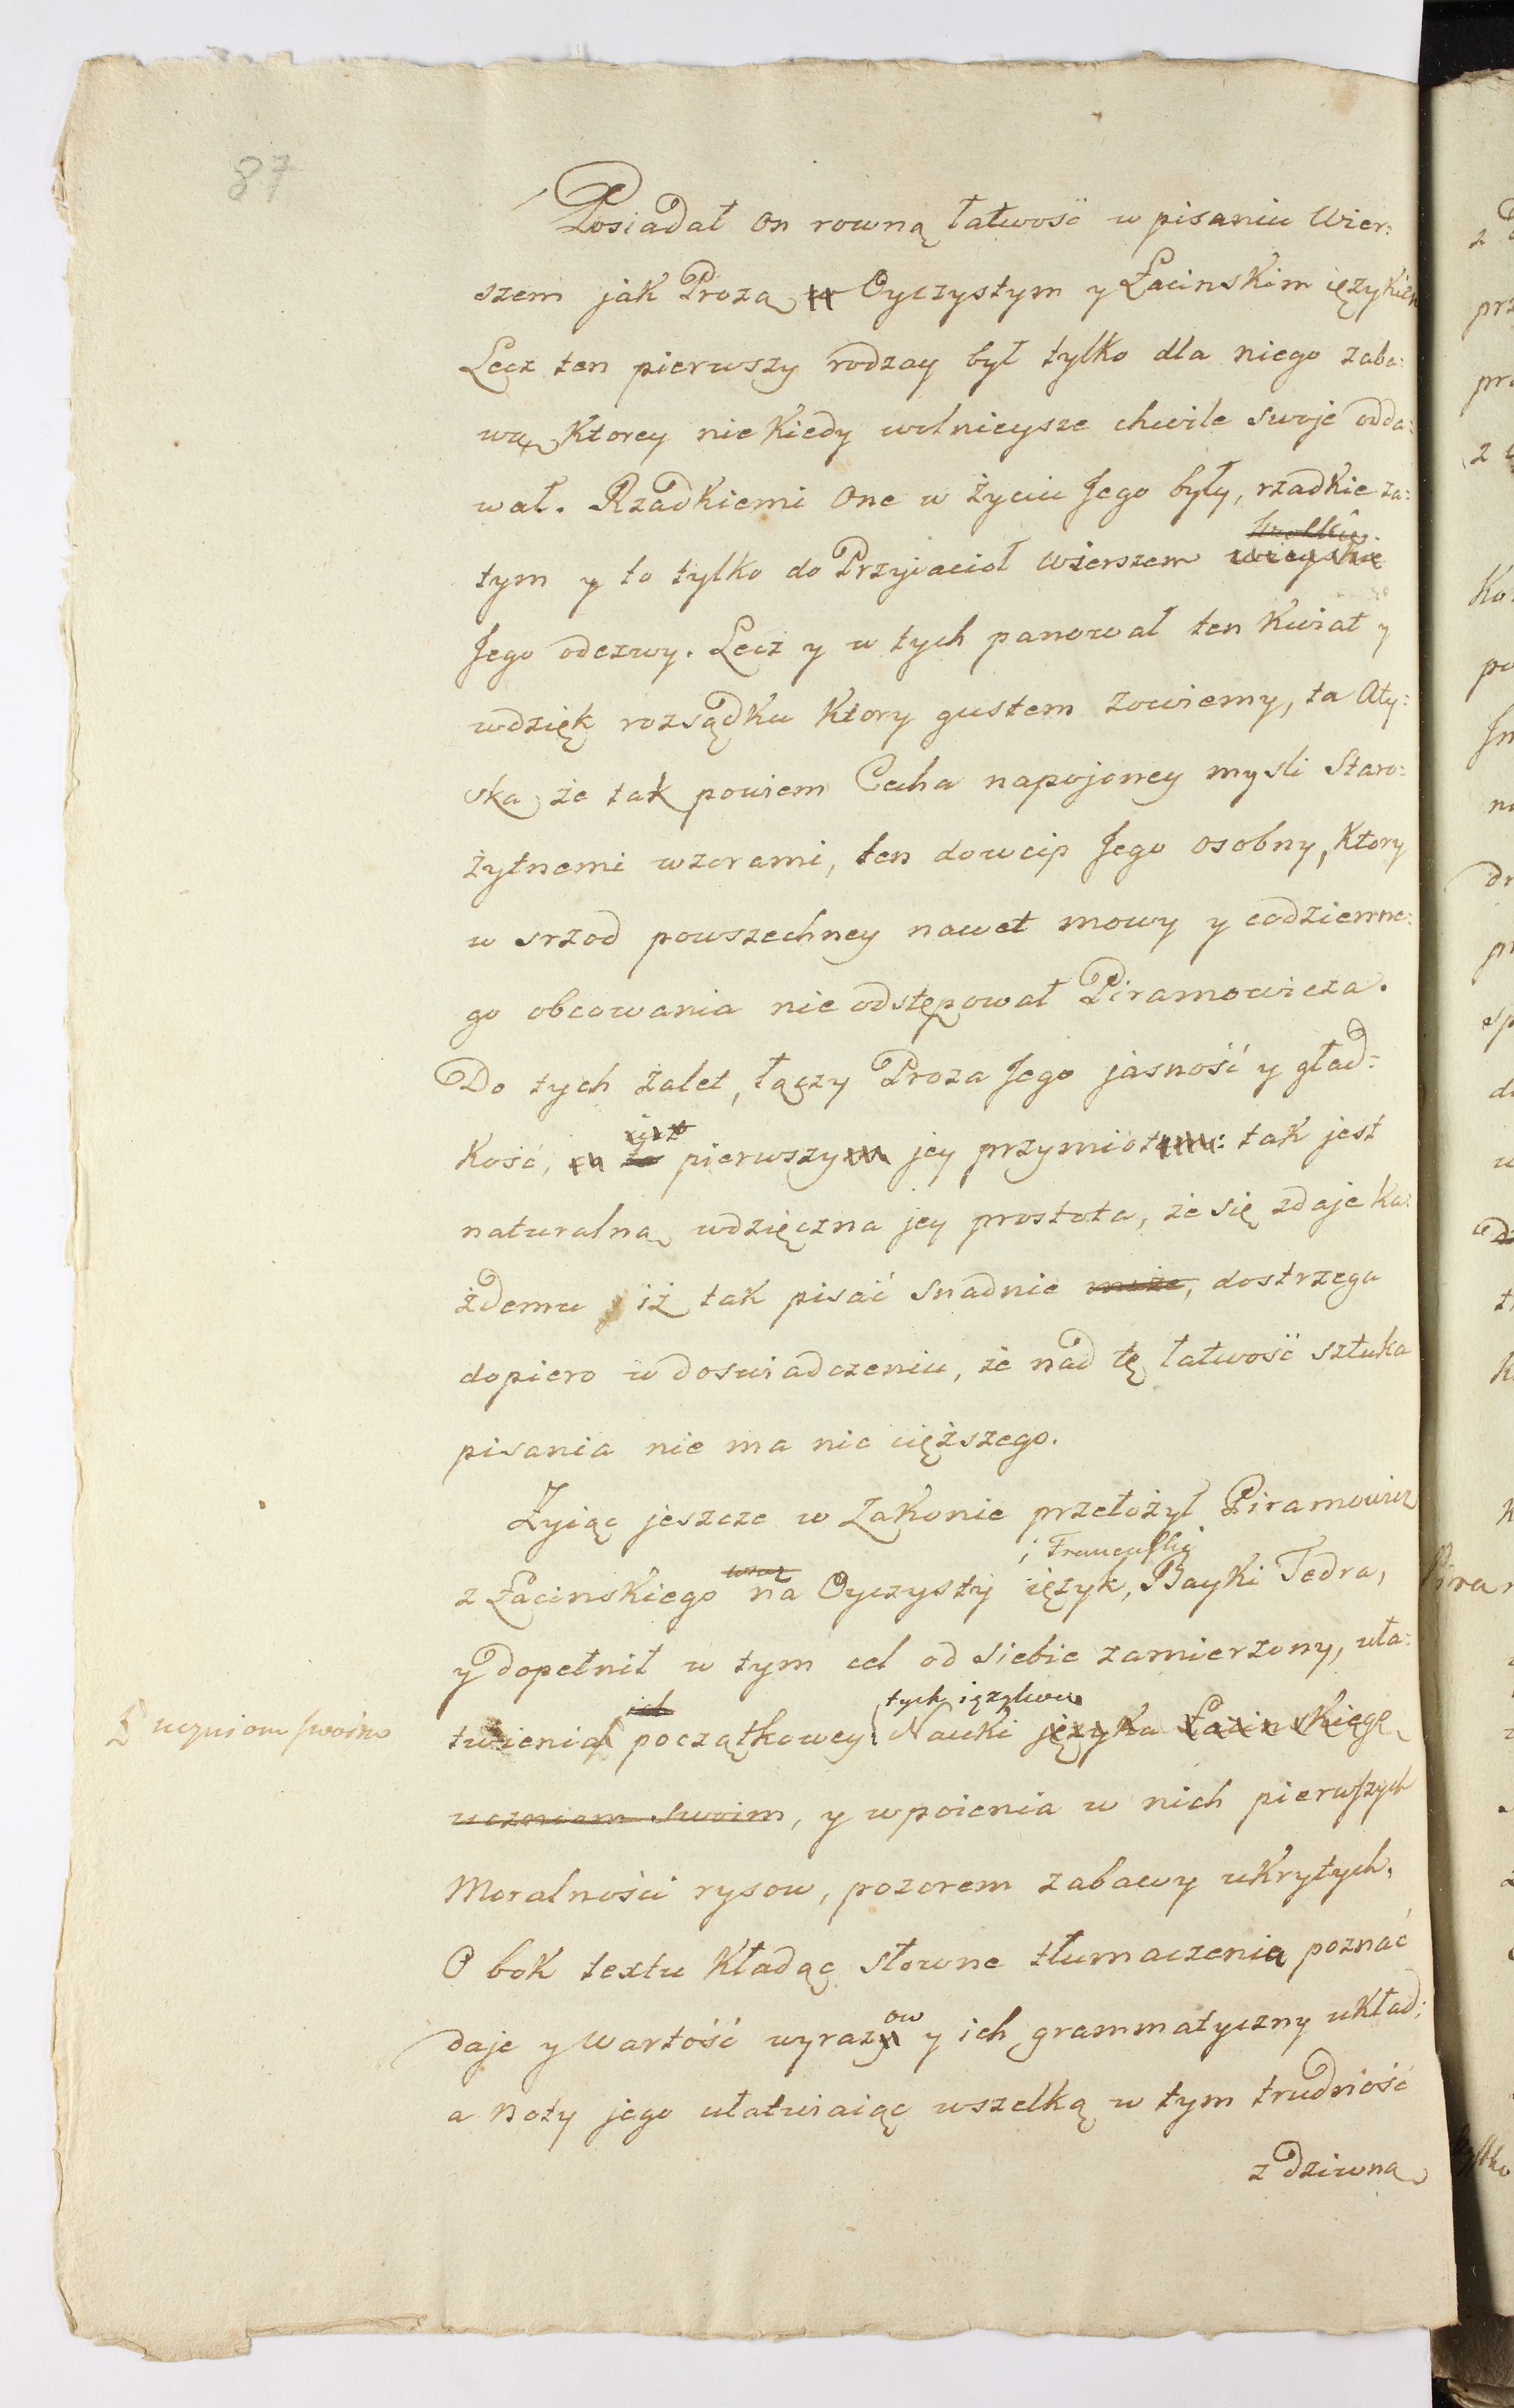 87
Posiadał on rowną łatwość w pisaniu Wier:
szem jak Prozą w Oyczystym y Łacinskim ięzykiem
Lecz ten pierwszy rodzay był tylko dla niego zaba:
wą, ktorey niekiedy wolnieysze chwile swoje odda:
wał. Rzadkiemi one w życiu Jego były, rzadkie za:
tym y to tylko do Przyiacioł wierszem
Jego odezwy. Lecz y w tych panował ten kwiat y
wdzięk rozsądku ktory gustem zowiemy, ta Aty:
ska, że tak powiem Cecha napojoney mysli Staro:
żytnemi wzorami, ten dowcip Jego osobny, ktory
w srzod powszechney nawet mowy y codzienne:
go obcowania nie odstępował Piramowicza.
Do tych zalet, łączy Proza Jego jasność y gład:
kość, to pierwszym jey przymiotem: tak jest
naturalną wdzięczna jey prostota, że się zdaje ka:
żdemu, iż tak pisać snadnie może, dostrzega
dopiero w doswiadczeniu, że nad tę łatwość sztuka
pisania nie ma nic cięższego.
Żyiąc jeszcze w Zakonie przełożył Piramowicz
i Francuski
z Łacinskiego na Oyczysty ięzyk, Bayki Fedra,
y dopełnił w tym cel od siebie zamierzony, uła:
ich tych ięzykow
uczniom swoim
twienia początkowey Nauki języka Łacinskiego
uczniom swoim, y wpoienia w nich pierwszych
Moralności rysow, pozorem zabawy ukrytych.
O bok textu kładąc słowne tłumaczenia poznać
ow
daje y wartość wyrazy y ich grammatyczny układ;
a Noty jego ułatwiaiąc wszelką w tym trudność
z dziwną